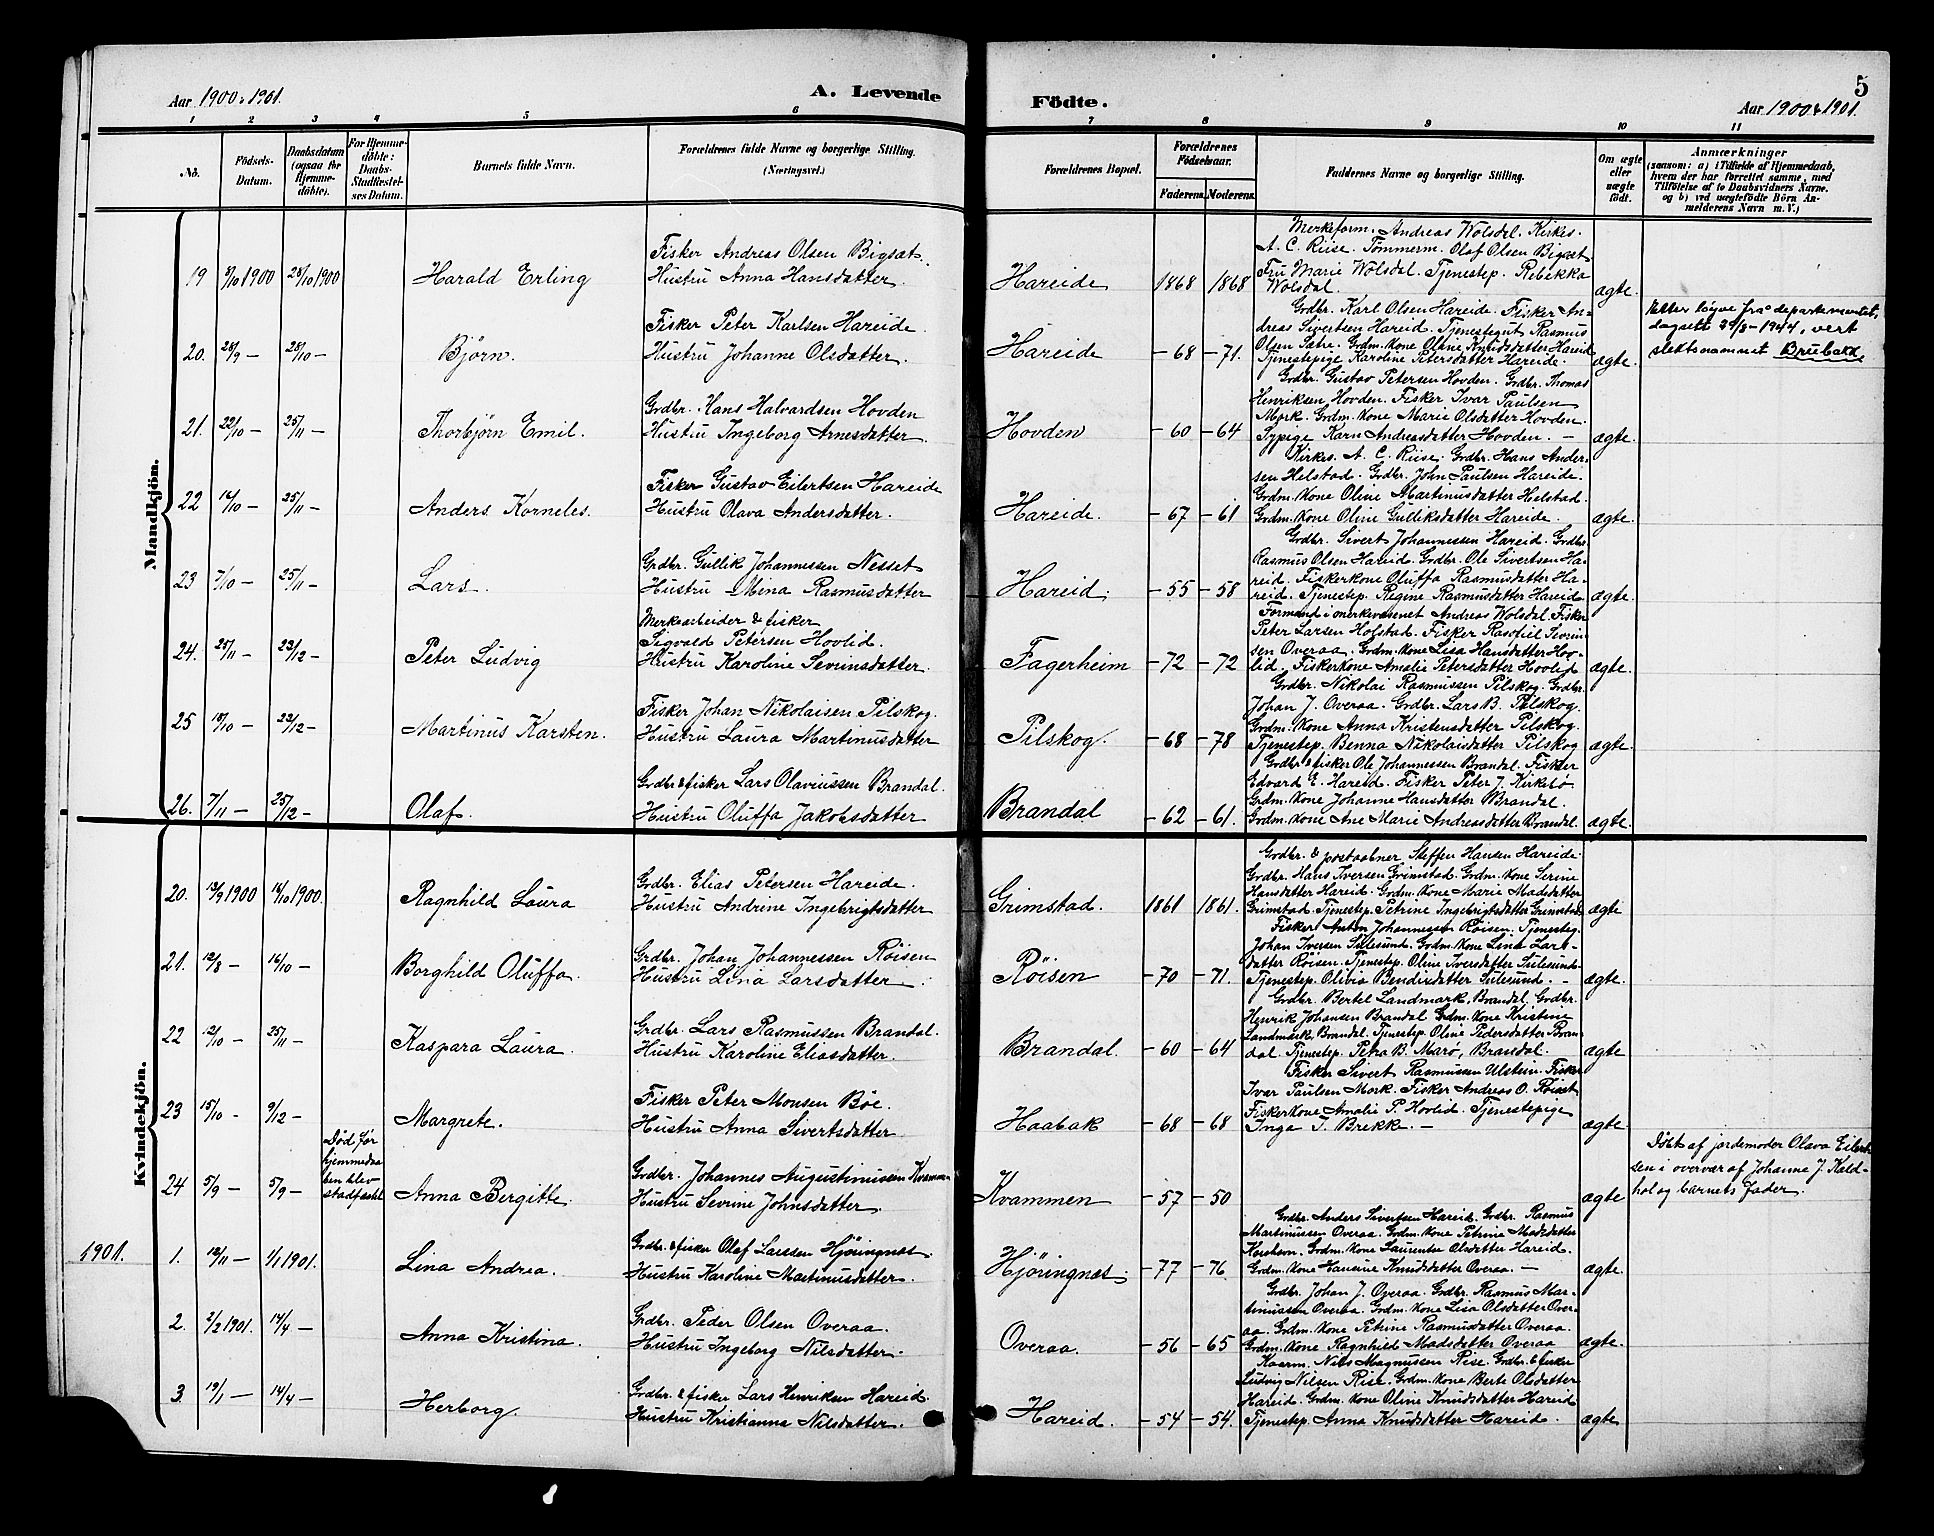 Aar 1900 & 1901.
A. Levende
Födte.
5
Aar 1900 & 1901.
1 2 3 4 5 6 7 8 9 10 11
No.
Födsels-Datum.
Daabsdatum (ogsaa for Hjemme-döbte).
For Hjemme-döbte: Daabs-Stadfæstel-ses Datum.
Barnets fulde Navn.
Forældrenes fulde Navne og borgerlige Stilling. (Næringsvei.)
Forældrenes Bopæl.
Forældrenes Födselsaar.
Faderens. Moderens.
Faddernes Navne og borgerlige Stilling.
Om ægte eller uægte födt.
Anmærkninger
(saasom: a) i Tilfælde af Hjemmedaab,
hvem der har forrettet samme, med
Tilföielse af to Daabsvidners Navne,
og b) ved uægtefödte Börn An-
melderens Navn m. V.)
Mandkjön.
19 3/10 1900 28/10 1900 Harald Erling
Fisker Andreas Olsen Bigset.
Hustru Anna Hansdatter.
Hareide 1868 1868
Merkeform. Andreas Wolsdal. Kirkes.
A. C. Riise. Tömmerm. Olaf Olsen Bigset
Fru Marie Wolsdal. Tjenestep. Rebekka
Wolsdal. ægte.
20. 28/9 — 28/10 — Björn.
Fisker Peter Karlsen Hareide.
Hustru Johanne Olsdatter.
Hareide — 68 — 71.
Grdbr. Karl Olsen Hareide. Fisker An-
dreas Sivertsen Hareid. Tjenestegut Rasmus
Olsen Sætre. Grdm. Kone Oline Knudsdatter Hareid
Tjenestepige Karoline Petersdatter Hareide. ægte.
Etter løyve frå departementet,
dagsett 29/8 - 1944, vert
slektsnamnet Brubakk
21. 22/10 — 25/11 — Thorbjörn Emil.
Grdbr. Hans Halvardsen Hovden
Hustru Ingeborg Arnesdatter.
Hovden — 60 — 64
Grdbr. Gustav Petersen Hovden. Grdbr. Thomas
Henriksen Hovden. Fisker Ivar Paulsen
Mork. Grdm. Kone Marie Olsdatter Hovden.
Sypige Karn Andreasdatter Hovden. — ægte.
22 14/10 — 25/11 — Anders Korneles.
Fisker Gustav Eilertsen Hareide
Hustru Olava Andersdatter.
Hareide. — 67 — 61
Kirkes. A. C. Riise. Grdbr. Hans Ander-
sen Helstad. Grdbr. John Paulsen Hareide.
Grdm. Kone Oline Martinusdatter Helstad.
Grdm. Kone Oline Gulliksdatter Hareide. ægte.
23 7/10 — 25/11 — Lars.
Grdbr. Gullik Johannessen Nesset
Hustru Mina Rasmusdatter
Hareid. — 55 — 58
Grdbr. Sivert Johannessen Hareid. Grdbr.
Rasmus Olsen Hareid. Grdbr. Ole Sivertsen Ha-
reid. Fiskerkone Oluffa Rasmusdatter Ha-
reid. Tjenestep. Regine Rasmusdatter Hareid ægte.
24. 25/11 — 23/12 — Peter Ludvig
Merkearbeider & fisker
Sigvald Petersen Hovlid.
Hustru Karoline Sevrinsdatter.
Fagerheim — 72 — 72
Formand i merkevæsenet Andreas Wolsdal. Fisker
Peter Larsen Holstad. Fisker Rasmus Sevrin-
sen Overaa. Grdm. Kone Lisa Hansdatter Hov-
lid. Fiskerkone Amalie Petersdatter Hovlid ægte.
25 18/10 — 23/12 — Martinus Karsten.
Fisker Johan Nikolaisen Pilskog.
Hustru Laura Martinusdatter
Pilskog. — 68 — 78
Grdbr. Nikolai Rasmussen Pilskog. Grdbr.
Johan J. Overaa. Grdbr. Lars B. Pilskog.
Grdm. Kone Anna Kristensdatter Pilskog.
Tjenestep. Benna Nikolaisdatter Pilskog ægte.
26. 7/11 — 25/12 — Olaf.
Grdbr & fisker Lars Olaviussen Brandal.
Hustru Oluffa Jakobsdatter
Brandal — 62 — 61.
Grdbr & fisker Ole Johannessen Brandal. Fisker
Edvard E. Hareid. Fisker Peter J. Kirkebø
Grdm. Kone Johanne Hansdatter Brandal.
Grdm. Kone Ane Marie Andreasdatter Brandal. ægte.
Kvindekjön.
20. 13/9 1900 14/10 1900. Ragnhild Laura
Grdbr. Elias Petersen Hareide.
Hustru Andrine Ingebrigtsdatter
Grimstad. 1861 1861.
Grdbr. & postaabner Steffen Hansen Hareide.
Grdbr. Hans Iversen Grimstad. Grdm. Kone Serine
Hansdatter Hareid. Grdm. Kone Marie Madsdatter
Grimstad. Tjenestep. Petrine Ingebrigtsdatter Grimstad ægte
21. 12/8 — 16/10 — Borghild Oluffa.
Grdbr. Johan Johannessen Röisen
Hustru Lina Larsdatter.
Röisen — 70 — 71.
Fisker Anton Johannessen Röisen. Tjenesteg.
Johan Iversen Sulesund. Grdm. Kone Lina Lars-
datter Röisen. Tjenestep. Oline Iversdatter Sulesund.
Tjenestep. Olivia Bendiksdatter Sulesund. — ægte.
22 12/10 — 25/11 — Kaspara Laura.
Grdbr. Lars Rasmussen Brandal.
Hustru Karoline Eliasdatter.
Brandal. — 60 — 64
Grdbr. Bertel Landmark, Brandal. Grdbr.
Henrik Johansen Brandal Grdm. Kone Kristine
Landmark, Brandal. Tjenestep. Oline Pedersdatter Bran-
dal. Tjenestep. Petra B. Marø, Brandal. ægte
23 15/10 - 9/12 — Margrete.
Fisker Peter Monsen Böe.
Hustru Anna Sivertsdatter.
Haabak — 68 — 68
Fisker Sivert Rasmussen Ulstein. Fisker
Ivar Paulsen Mork. Fisker Andreas O. Röiset
Fiskerkone Amalie P. Hovlid. Tjenestepige
Inga J. Brekk. — ægte.
24 5/9 — 5/9 — Död før
hjemmedaa-
ben blev
stadfæstet
Anna Bergitte.
Grdbr. Johannes Augustinussen Kvammen
Hustru Sevrine Johnsdatter.
Kvammen — 57 — 50 ægte
Döbt af jordemoder Olava Eilert-
sen i overvær af Johanne J. Kald-
hol og barnets fader.
1901. 1. 18/11 — 1/1 1901. Lina Andrea.
Grdbr. & fisker Olaf Larssen Hjöringnes.
Hustru Karoline Martinusdatter.
Hjöringnes. — 77 — 76
Grdbr. Anders Sivertsen Hareid. Grdbr. Rasmus
Martinussen Overaa. Grdm. Kone Petrine Madsdatter
Grdm. Kone Laurentse Olsdatter Hareid.
Grdm. Kone Hansine Knudsdatter Overaa. — ægte.
2. 2/2 1901. 14/4 — Anna Kristina.
Grdbr. Peder Olsen Overaa.
Hustru Ingeborg Nilsdatter.
Overaa. — 56 — 65
Grdbr. Johan J. Overaa. Grdbr. Rasmus Mar-
tinussen Overaa. Grdm. Kone Lisa Olsdatter Over-
aa. Grdm. Kone Petrine Rasmusdatter Overaa.
Grdm. Kone Ragnhild Madsdatter Overaa ægte.
3 19/1 — 14/4 — Herborg.
Grdbr. & fisker Lars Henriksen Hareid.
Hustru Kristianna Nilsdatter.
Hareid. — 54 — 54.
Kaarm. Nils Magnussen Rise. Grdbr. & fisker
Ludvig Nilsen Rise. Grdm. Kone Berte Olsdatter
Hareid. Grdm. Kone Oline Knudsdatter Hareid
Tjenestep. Anna Knudsdatter Hareid. ægte